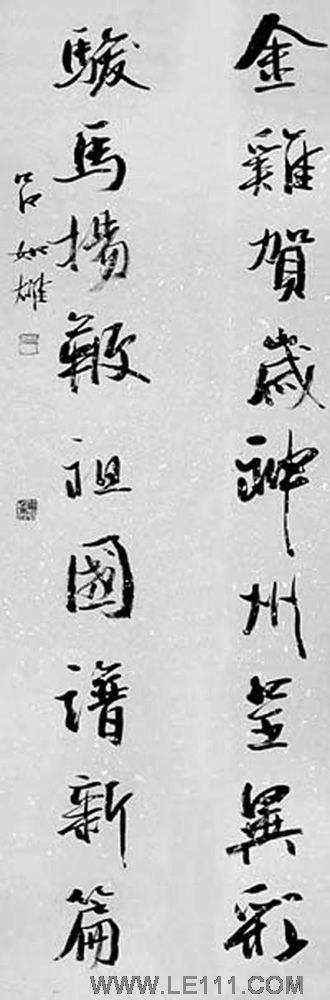 金雞賀歲神州呈異彩
駿馬揚鞭祖國譜新篇
呂如雄
WWW.LE111.COM